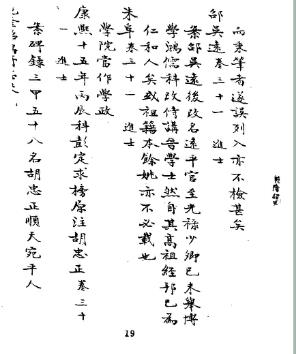 而秉筆者遂誤列入亦不檢甚矣
邵吳遠卷三十一 進士
案邵吳遠後改名遠平官至光祿少卿已未舉博
學鴻儒科改侍講晉學士然自其高祖經邦已為
仁和人矣或祖籍本餘姚亦不必載也
朱阜卷三十一 進士
學院當作學政
康熙十五年丙辰科彭定求榜原注胡忠正卷三十
一 進士
案碑錄三甲五十八名胡忠正順天宛平人
19